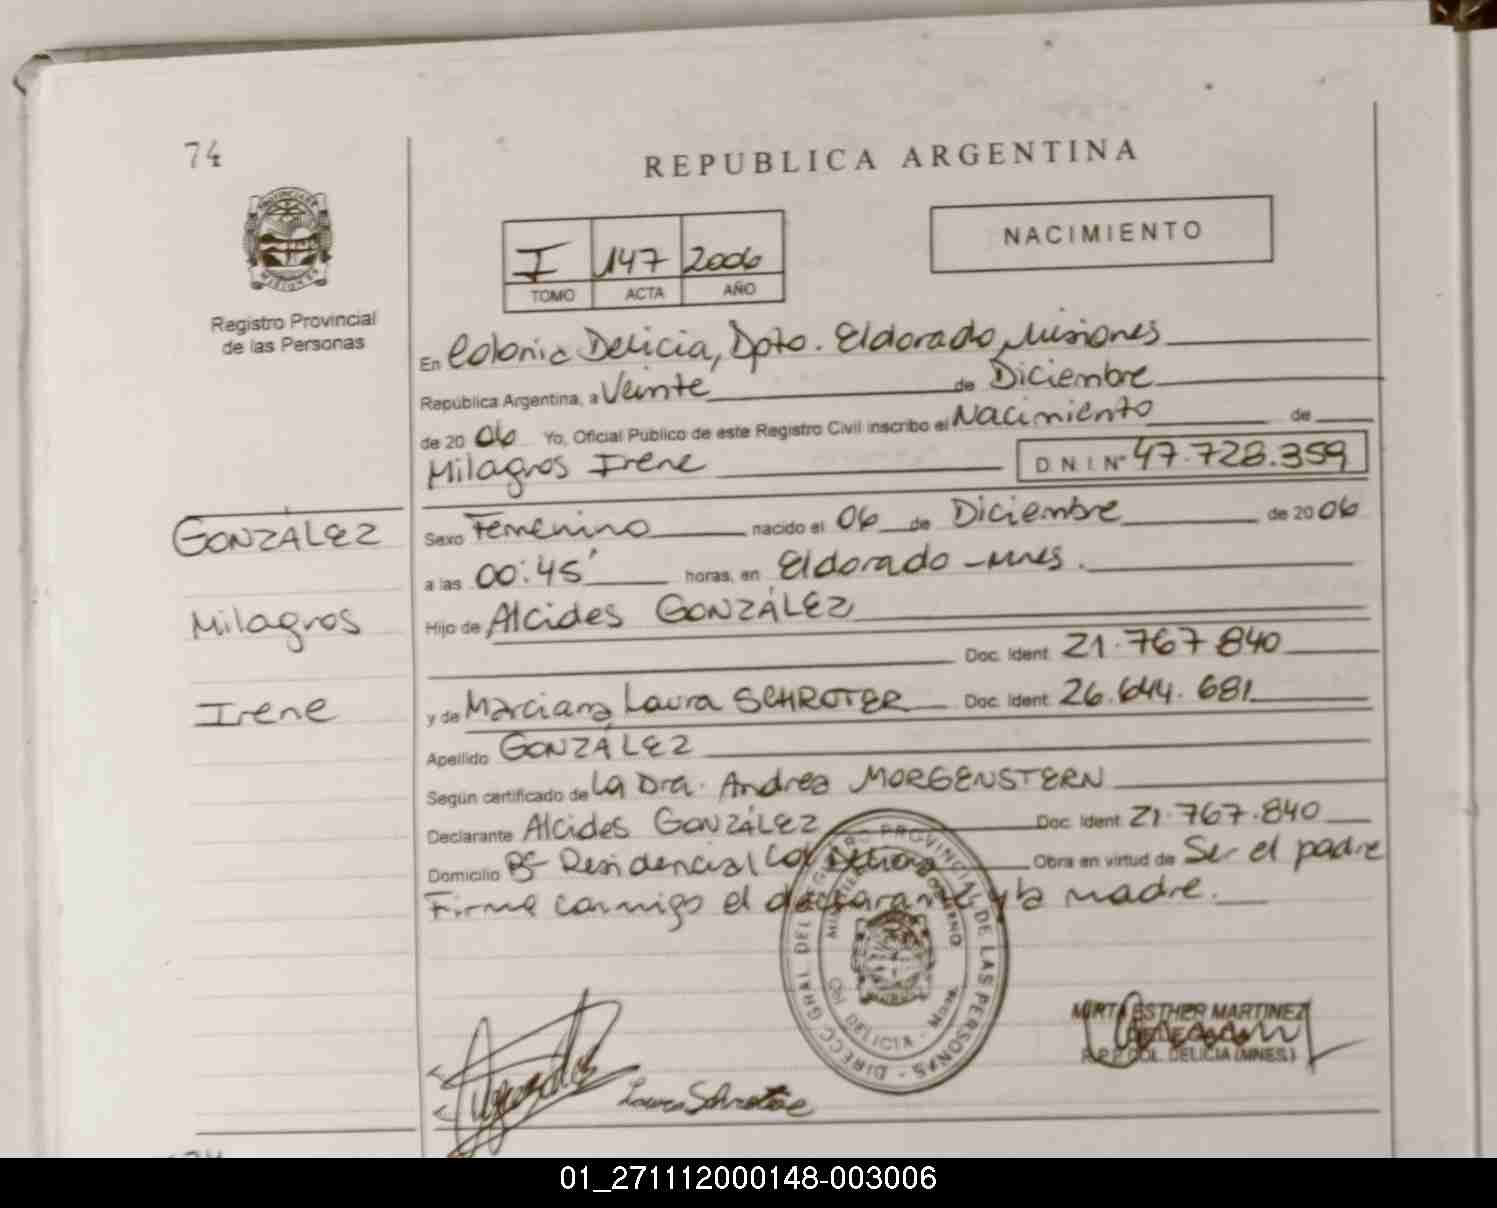 74
REPUBLICA ARGENTINA
NACIMIENTO
I 147 2006
TOMO ACTA AÑO
Registro Provincial
de las Personas
En Colonia Delicia, Dpto. Eldorado, Misiones
República Argentina, a Veinte de Diciembre
de 20 06 Yo, Oficial Público de este Registro Civil inscribo el Nacimiento de
Milagros Irene D.N.I. Nº 47.728.359
GONZÁLEZ
Milagros
Irene
Sexo Femenino nacido el 06 de Diciembre de 20 06
a las 00:45' horas, en Eldorado - Mnes.
Hijo de Alcides GONZÁLEZ
Doc. Ident. 21.767.840
y de Marciana Laura SCHROTER Doc. Ident. 26.644.681
Apellido GONZÁLEZ
Según certificado de La Dra. Andrea MORGENSTERN
Declarante Alcides GONZÁLEZ Doc. Ident. 21.767.840
Domicilio Bº Residencial Col Delicia Obra en virtud de Ser el padre
Firma conmigo el declarante y la madre.
DIRECC. GRAL. DEL REGISTRO PROVINCIAL DE LAS PERSONAS
COL. DELICIA - Mnes.
MIRTA ESTHER MARTINEZ
R.P.P. COL. DELICIA (MNES.)
Laura
01_271112000148-003006